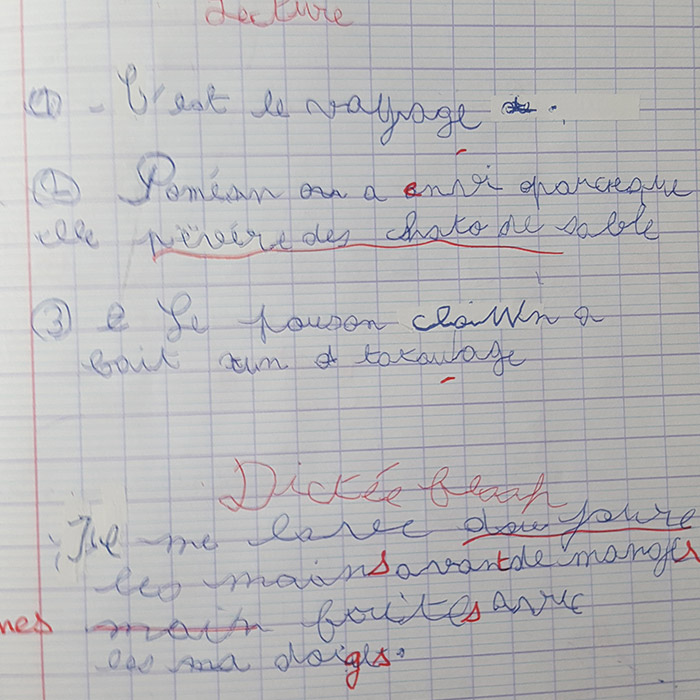 Lecture
① - C'est le vayage
② Poméan on a envi parceque
elle prévére des chato de sable
③ Le pouson clouwn a
bait un tatouage
Dictée flash
Je me lave dou joure
les mains avant de manges
nes main fruites avec
les ma doigs.